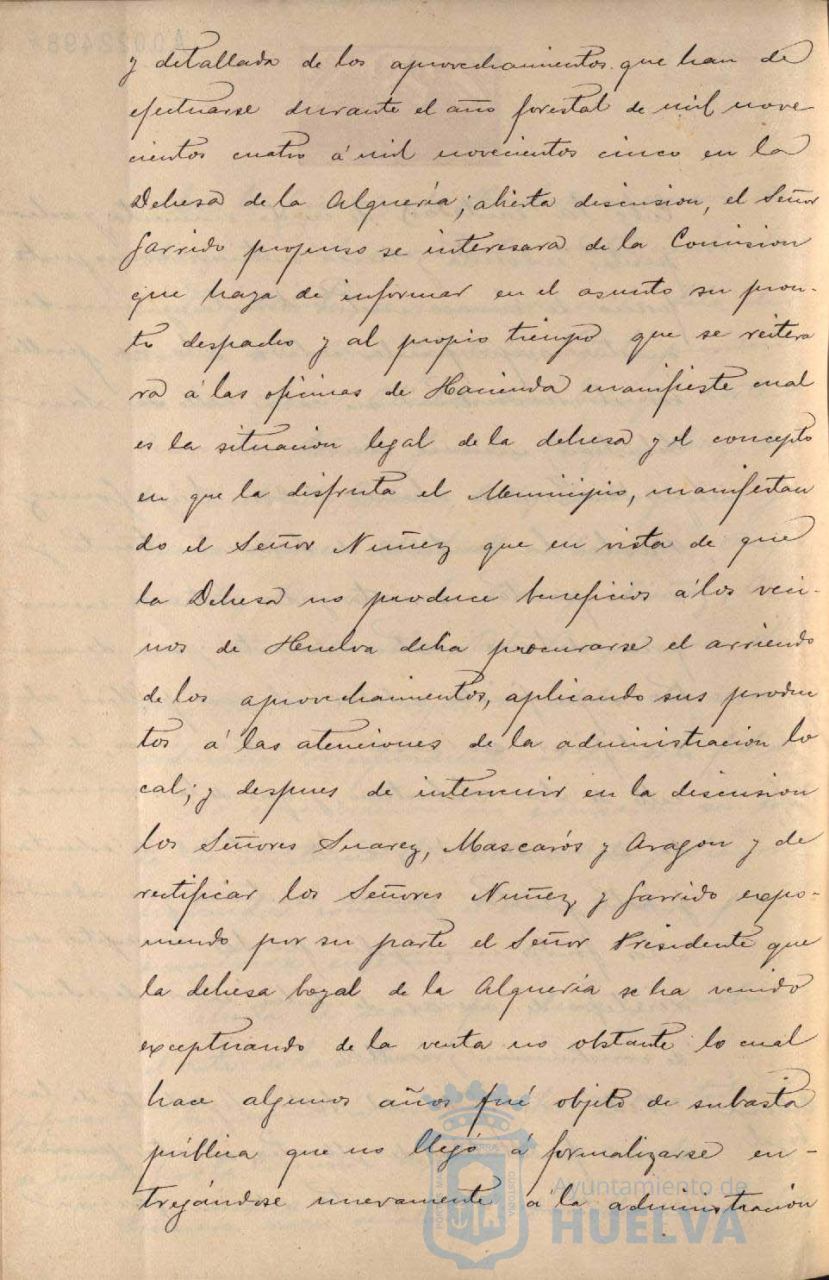 y detallada de los aprovechamientos que han de
efectuarse durante el año forestal de mil nove-
cientos cuatro á mil novecientos cinco en la
Dehesa de la Alquería; abierta discusion, el Señor
Garrido propuso se interesara de la Comision
que haya de informar en el asunto su pron-
to despacho y al propio tiempo que se reitera
ra á las oficinas de Hacienda manifieste cual
es la situacion legal de la dehesa y el concepto
en que la disfruta el Municipio, manifestan
do el Señor Nuñez que en vista de que
la Dehesa no produce beneficios á los veci-
nos de Huelva debia procurarse el arriendo
de los aprovechamientos, aplicando sus produc
tos á las atenciones de la administracion lo
cal; y despues de intervenir en la discusion
los Señores Suarez, Mascarós y Aragon y de
rectificar los Señores Nuñez y Garrido expo-
niendo por su parte el Señor Presidente que
la dehesa boyal de la Alquería se ha venido
exceptuando de la venta no obstante lo cual
hace algunos años fué objeto de subasta
pública que no llegó á formalizarse en-
tregándose nuevamente á la administración
Ayuntamiento de
HUELVA